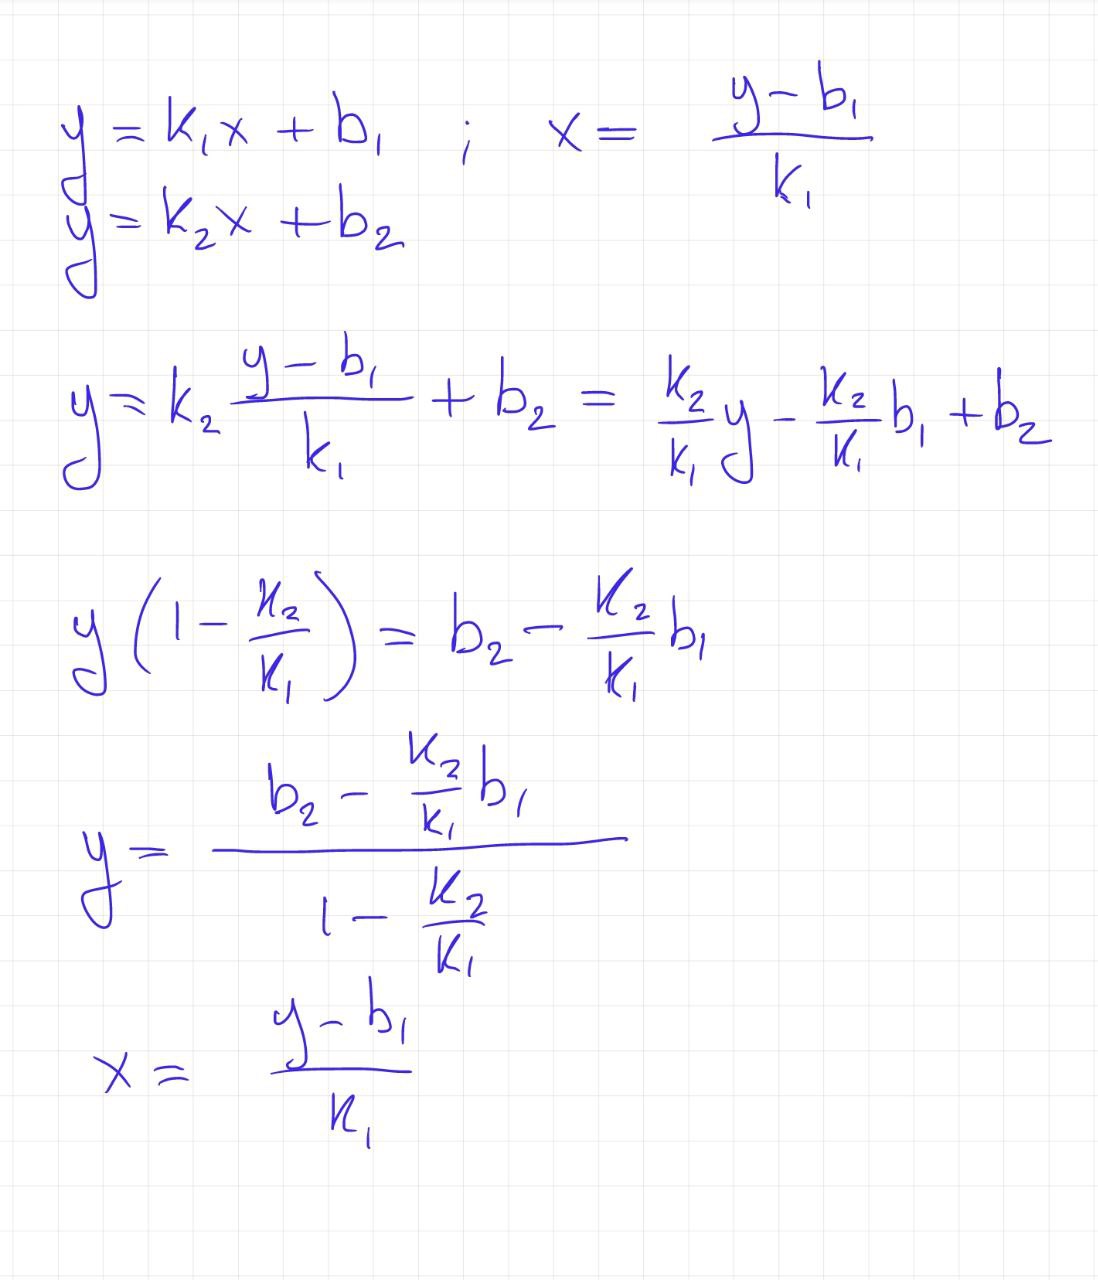 y = k₁x + b₁ ; x = (y - b₁)/k₁
y = k₂x + b₂
y = k₂ (y - b₁)/k₁ + b₂ = k₂/k₁ y - k₂/k₁ b₁ + b₂
y (1 - k₂/k₁) = b₂ - k₂/k₁ b₁
y = (b₂ - k₂/k₁ b₁)/(1 - k₂/k₁)
x = (y - b₁)/k₁